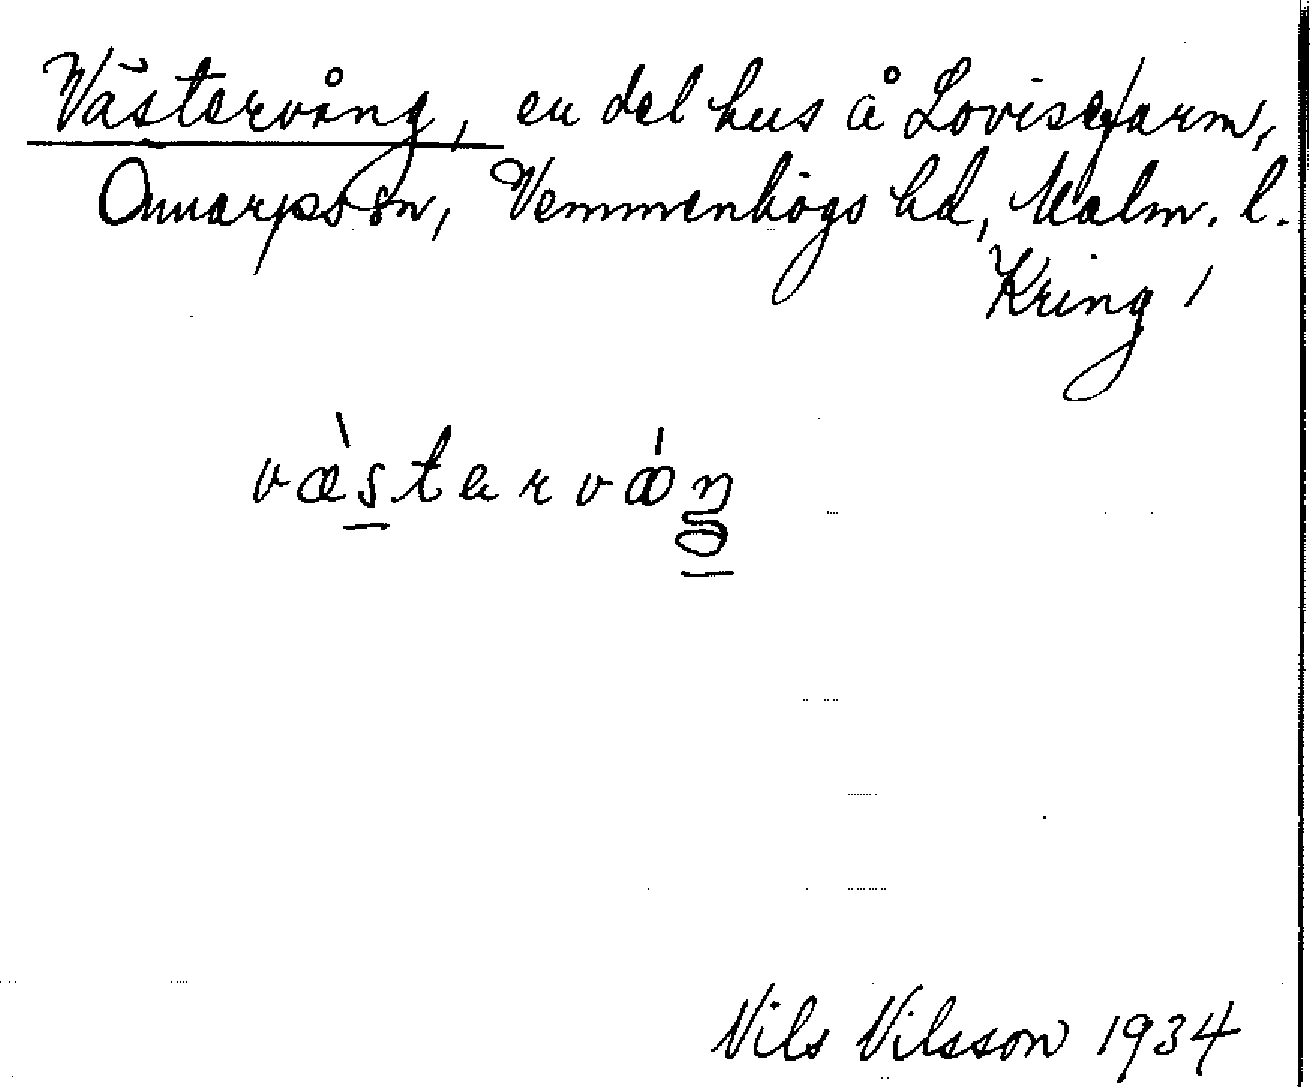 Västervång, en del hus å Lovisefarm,
Önnarps sn, Vemmenhögs hd, Malm. l.
Kring /
væ̀stervǿŋ
Nils Nilsson 1934